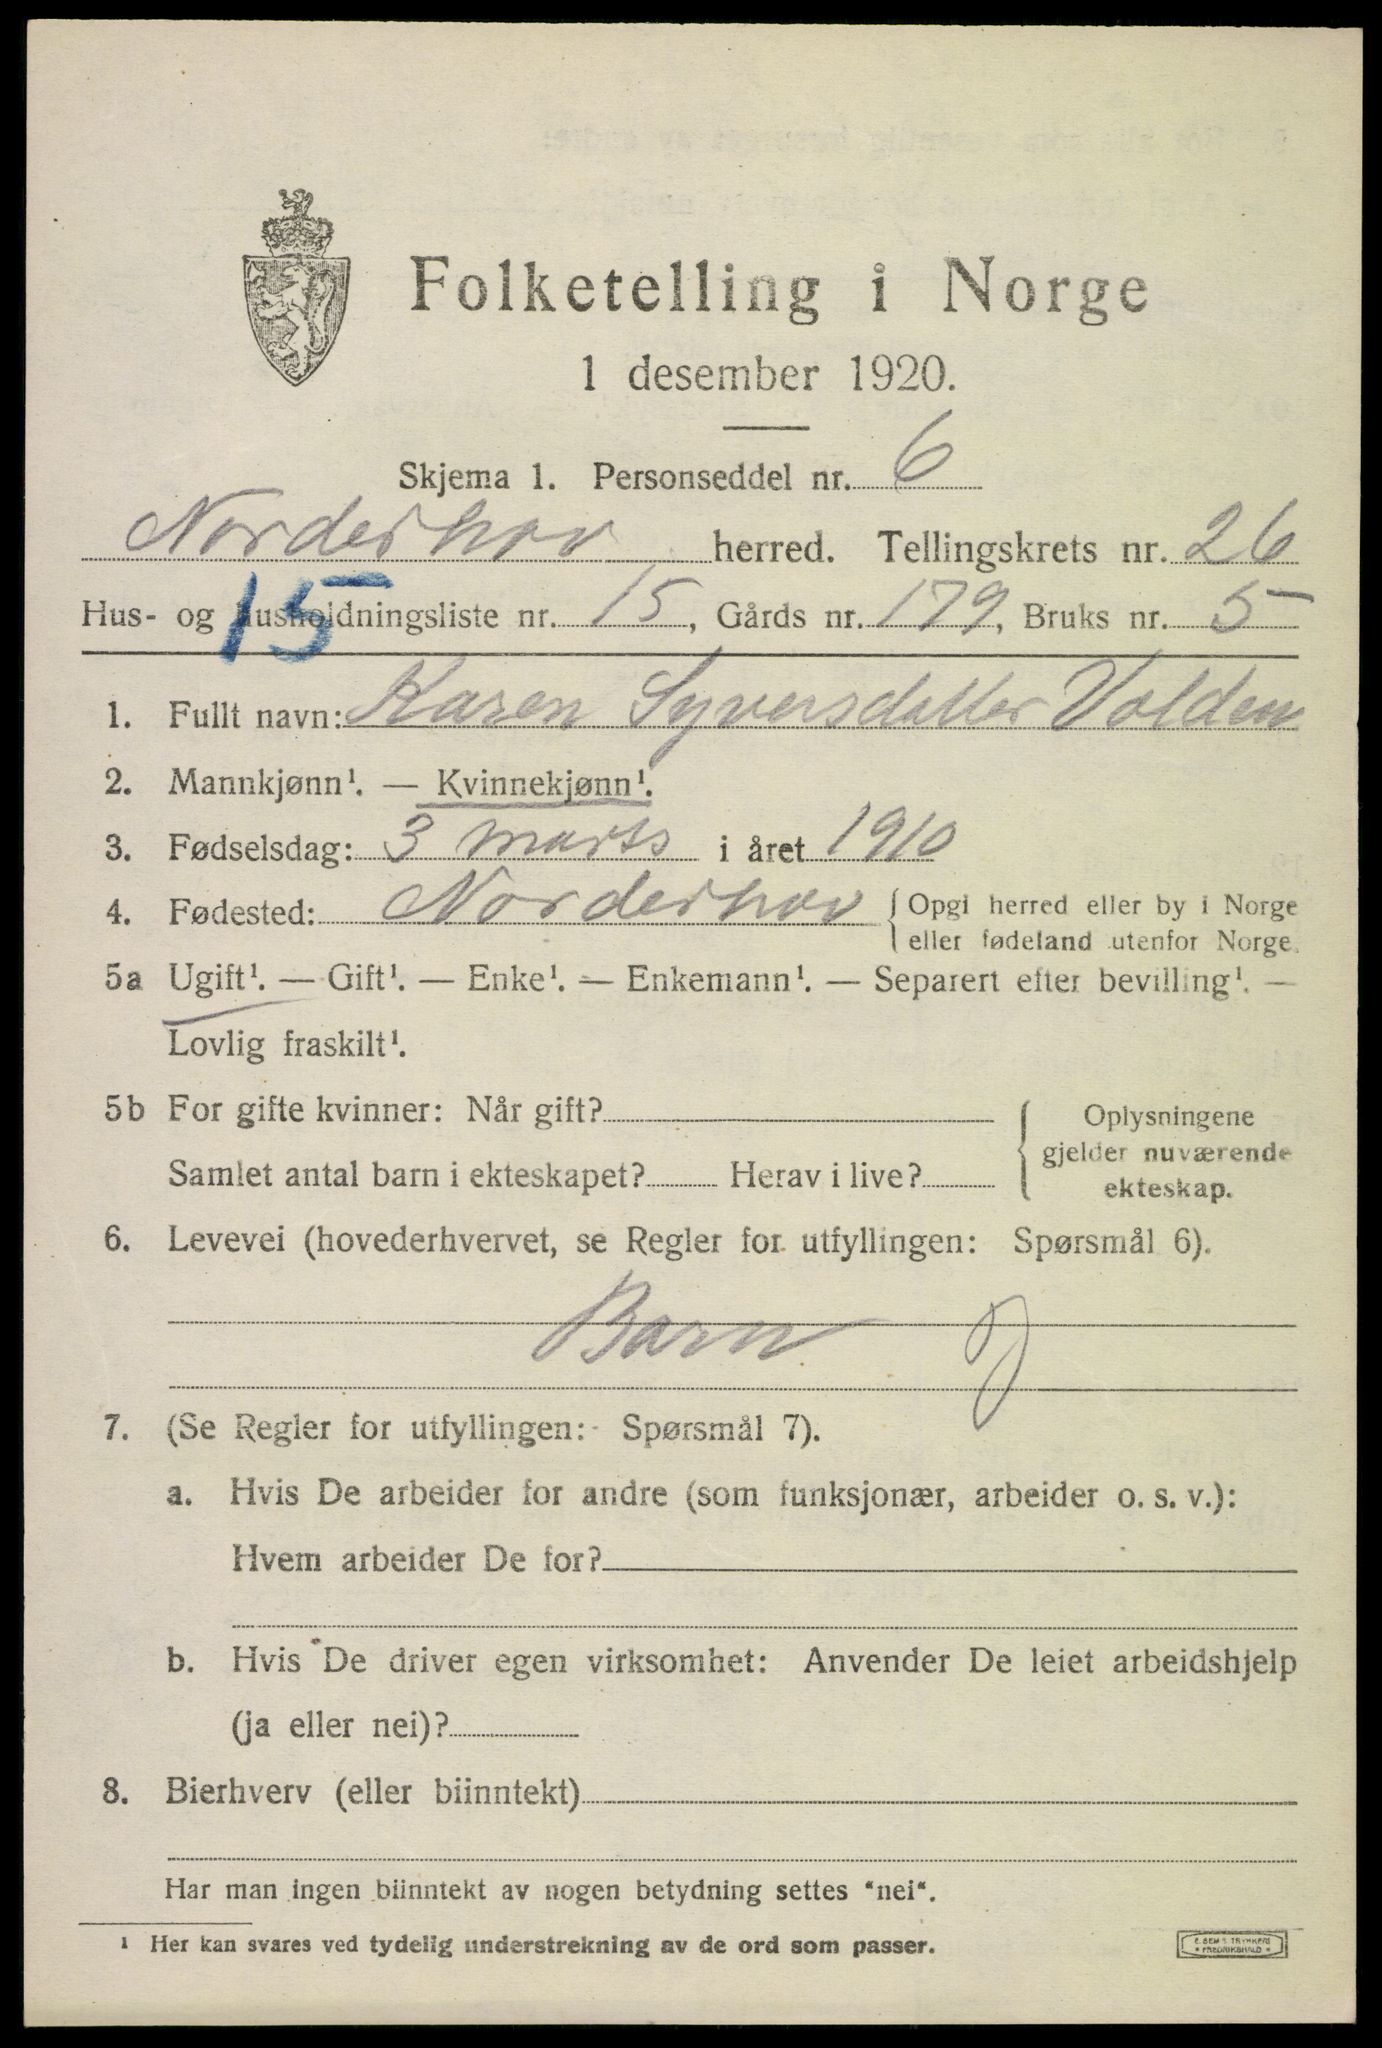 Folketelling i Norge
1 desember 1920.
Skjema 1. Personseddel nr. 6
Norderhov herred. Tellingskrets nr. 26
15
Hus- og husholdningsliste nr. 15, Gårds nr. 179, Bruks nr. 5
1. Fullt navn: Karen Syversdatter Volden
2. Mannkjønn¹. — Kvinnekjønn¹.
3. Fødselsdag: 3 marts i året 1910
4. Fødested: Norderhov { Opgi herred eller by i Norge
eller fødeland utenfor Norge.
5a Ugift¹. — Gift¹. — Enke¹. — Enkemann¹. — Separert efter bevilling¹. —
Lovlig fraskilt¹.
5b For gifte kvinner: Når gift?
Samlet antal barn i ekteskapet? Herav i live?
{ Oplysningene
gjelder nuværende
ekteskap.
6. Levevei (hovederhvervet, se Regler for utfyllingen: Spørsmål 6).
Barn
7. (Se Regler for utfyllingen: Spørsmål 7).
a. Hvis De arbeider for andre (som funksjonær, arbeider o. s. v.):
Hvem arbeider De for?
b. Hvis De driver egen virksomhet: Anvender De leiet arbeidshjelp
(ja eller nei)?
8. Bierhverv (eller biinntekt)
Har man ingen biinntekt av nogen betydning settes “nei“.
¹ Her kan svares ved tydelig understrekning av de ord som passer.
E. SEM'S TRYKKERI
* FREDRIKSHALD *